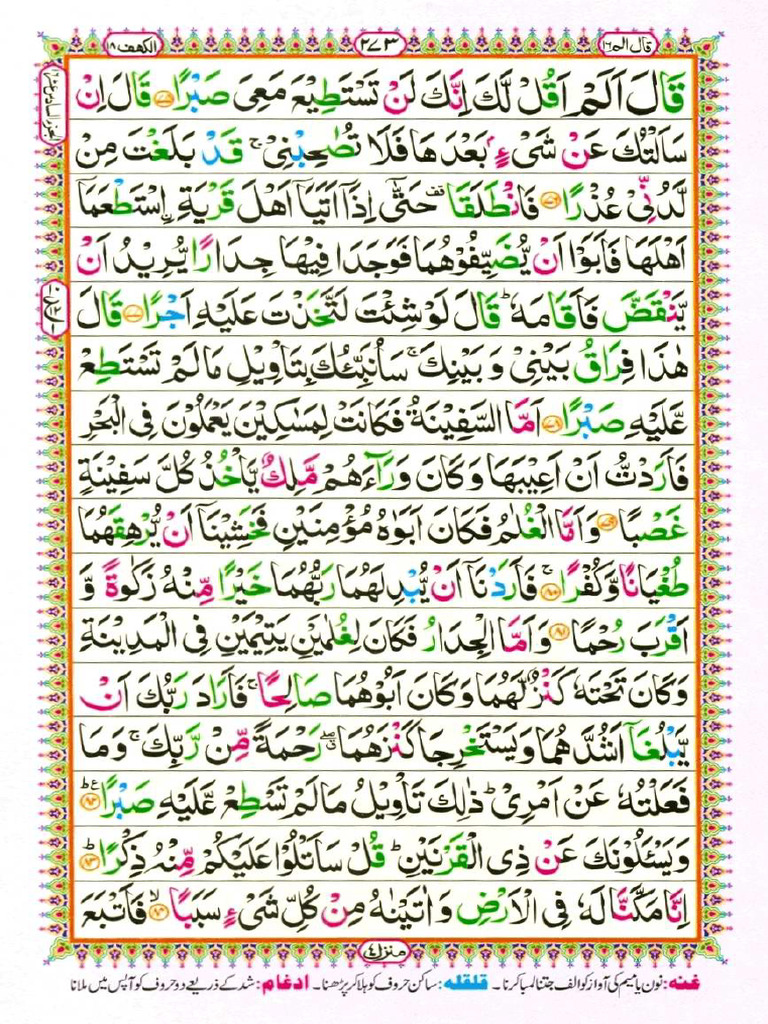 قال الم ١٦
٢٧٣
الكهف ١٨
قَالَ اَلَمْ اَقُلْ لَّكَ اِنَّكَ لَنْ تَسْتَطِيْعَ مَعِىَ صَبْرًا ﴿٧٥﴾ قَالَ اِنْ
سَاَلْتُكَ عَنْ شَىْءٍۭ بَعْدَهَا فَلَا تُصٰحِبْنِىْ ۚ قَدْ بَلَغْتَ مِنْ
لَّدُنِّىْ عُذْرًا ﴿٧٦﴾ فَانْطَلَقَا ۥ حَتّٰۤى اِذَاۤ اَتَيَاۤ اَهْلَ قَرْيَةِ ۨاسْتَطْعَمَاۤ
اَهْلَهَا فَاَبَوْا اَنْ يُّضَيِّفُوْهُمَا فَوَجَدَا فِيْهَا جِدَارًا يُّرِيْدُ اَنْ
يَّنْقَضَّ فَاَقَامَهٗ ؕ قَالَ لَوْ شِئْتَ لَتَّخَذْتَ عَلَيْهِ اَجْرًا ﴿٧٧﴾ قَالَ
هٰذَا فِرَاقُ بَيْنِىْ وَ بَيْنِكَ ۚ سَاُنَبِّئُكَ بِتَاْوِيْلِ مَا لَمْ تَسْتَطِعْ
عَّلَيْهِ صَبْرًا ﴿٧٨﴾ اَمَّا السَّفِيْنَةُ فَكَانَتْ لِمَسٰكِيْنَ يَعْمَلُوْنَ فِى الْبَحْرِ
فَاَرَدْتُّ اَنْ اَعِيْبَهَا وَكَانَ وَرَآءَهُمْ مَّلِكٌ يَّاْخُذُ كُلَّ سَفِيْنَةٍ
غَصْبًا ﴿٧٩﴾ وَاَمَّا الْغُلٰمُ فَكَانَ اَبَوٰهُ مُؤْمِنَيْنِ فَخَشِيْنَاۤ اَنْ يُّرْهِقَهُمَا
طُغْيَانًا وَّكُفْرًا ﴿٨٠﴾ ۚ فَاَرَدْنَاۤ اَنْ يُّبْدِلَهُمَا رَبُّهُمَا خَيْرًا مِّنْهُ زَكٰوةً وَّ
اَقْرَبَ رُحْمًا ﴿٨١﴾ وَاَمَّا الْجِدَارُ فَكَانَ لِغُلٰمَيْنِ يَتِيْمَيْنِ فِى الْمَدِيْنَةِ
وَكَانَ تَحْتَهٗ كَنْزٌ لَّهُمَا وَكَانَ اَبُوْهُمَا صَالِحًا ۚ فَاَرَادَ رَبُّكَ اَنْ
يَّبْلُغَاۤ اَشُدَّهُمَا وَيَسْتَخْرِجَا كَنْزَهُمَا ۖ رَحْمَةً مِّنْ رَّبِّكَ ۚ وَمَا
فَعَلْتُهٗ عَنْ اَمْرِىْ ؕ ذٰلِكَ تَاْوِيْلُ مَا لَمْ تَسْطِعْ عَّلَيْهِ صَبْرًا ﴿٨٢﴾ ؕ
وَيَسْئَلُوْنَكَ عَنْ ذِى الْقَرْنَيْنِ ؕ قُلْ سَاَتْلُوْا عَلَيْكُمْ مِّنْهُ ذِكْرًا ﴿٨٣﴾ ؕ
اِنَّا مَكَّنَّا لَهٗ فِى الْاَرْضِ وَاٰتَيْنٰهُ مِنْ كُلِّ شَىْءٍ سَبَبًا ﴿٨٤﴾ ۙ فَاَتْبَعَ
منزل ٤
غنه: نون یا میم کی آواز کو الف جتنا لمبا کرنا۔ قلقله: ساکن حروف کو ہلا کر پڑھنا۔ ادغام: شد کے ذریعے دو حروف کو آپس میں ملانا